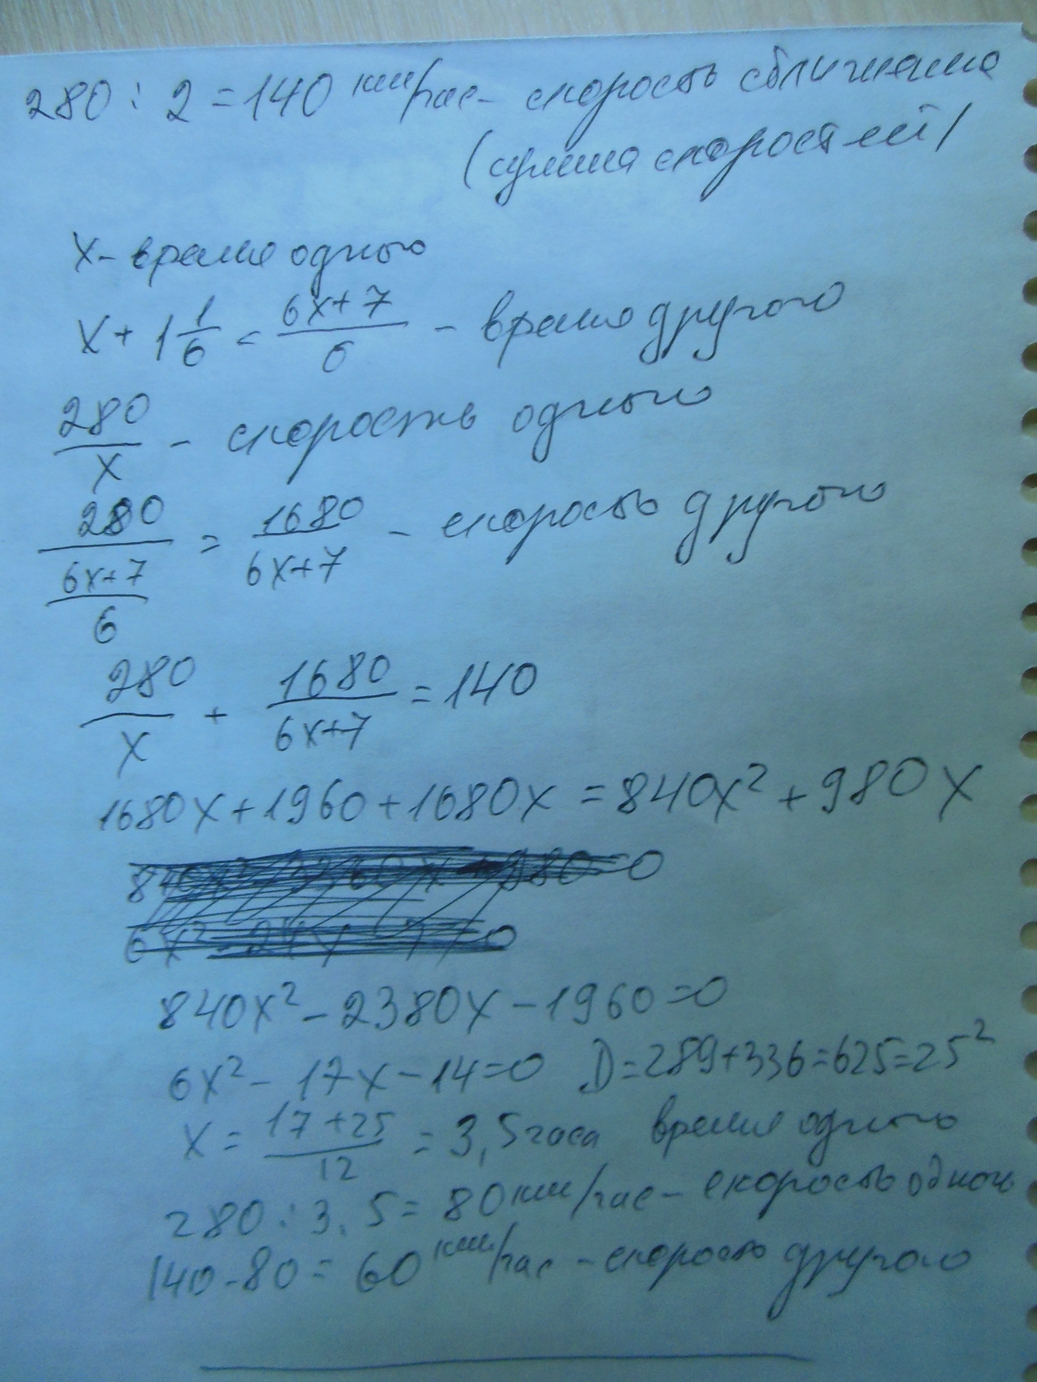 280 : 2 = 140 км/час - скорость сближения
(сумма скоростей)
x - время одного
x + 1 1/6 = (6x+7)/6 - время другого
280/x - скорость одного
280/((6x+7)/6) = 1680/(6x+7) - скорость другого
280/x + 1680/(6x+7) = 140
1680x + 1960 + 1680x = 840x² + 980x
840x² - 2380x - 1960 = 0
6x² - 17x - 14 = 0 D = 289 + 336 = 625 = 25²
x = (17+25)/12 = 3,5 часа время одного
280 : 3,5 = 80 км/час - скорость одного
140 - 80 = 60 км/час - скорость другого